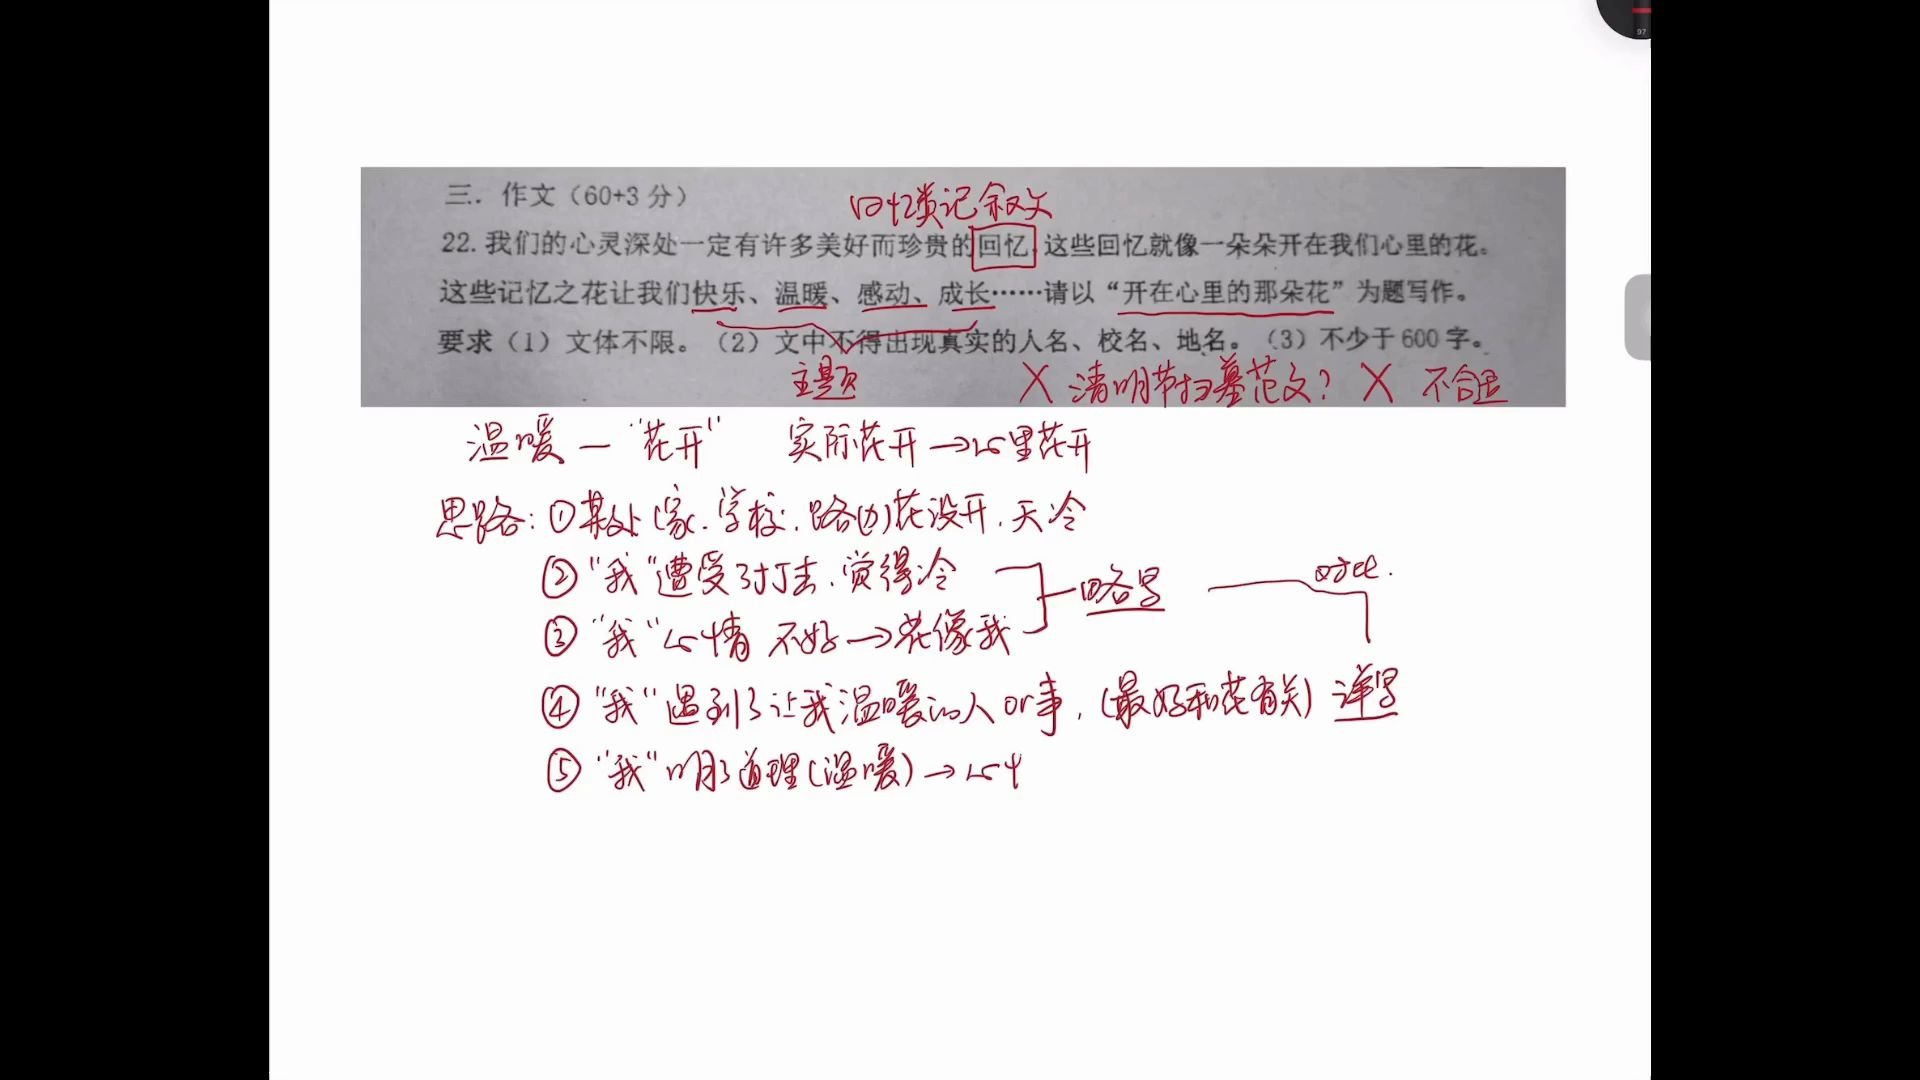 97
三. 作文（60+3 分）
回忆类记叙文
22. 我们的心灵深处一定有许多美好而珍贵的回忆，这些回忆就像一朵朵开在我们心里的花。
这些记忆之花让我们快乐、温暖、感动、成长……请以“开在心里的那朵花”为题写作。
要求（1）文体不限。（2）文中不得出现真实的人名、校名、地名。（3）不少于 600 字。
主题 X 清明节扫墓范文? X 不合适
温暖—“花开” 实际花开→心里花开
思路: ①某处(家、学校、路边)花没开, 天冷
②“我”遭受了打击, 觉得冷
略写 对比.
③“我”心情不好→花像我
④“我”遇到了让我温暖的人or事, (最好和花有关) 详写
⑤“我”明了道理(温暖)→心中